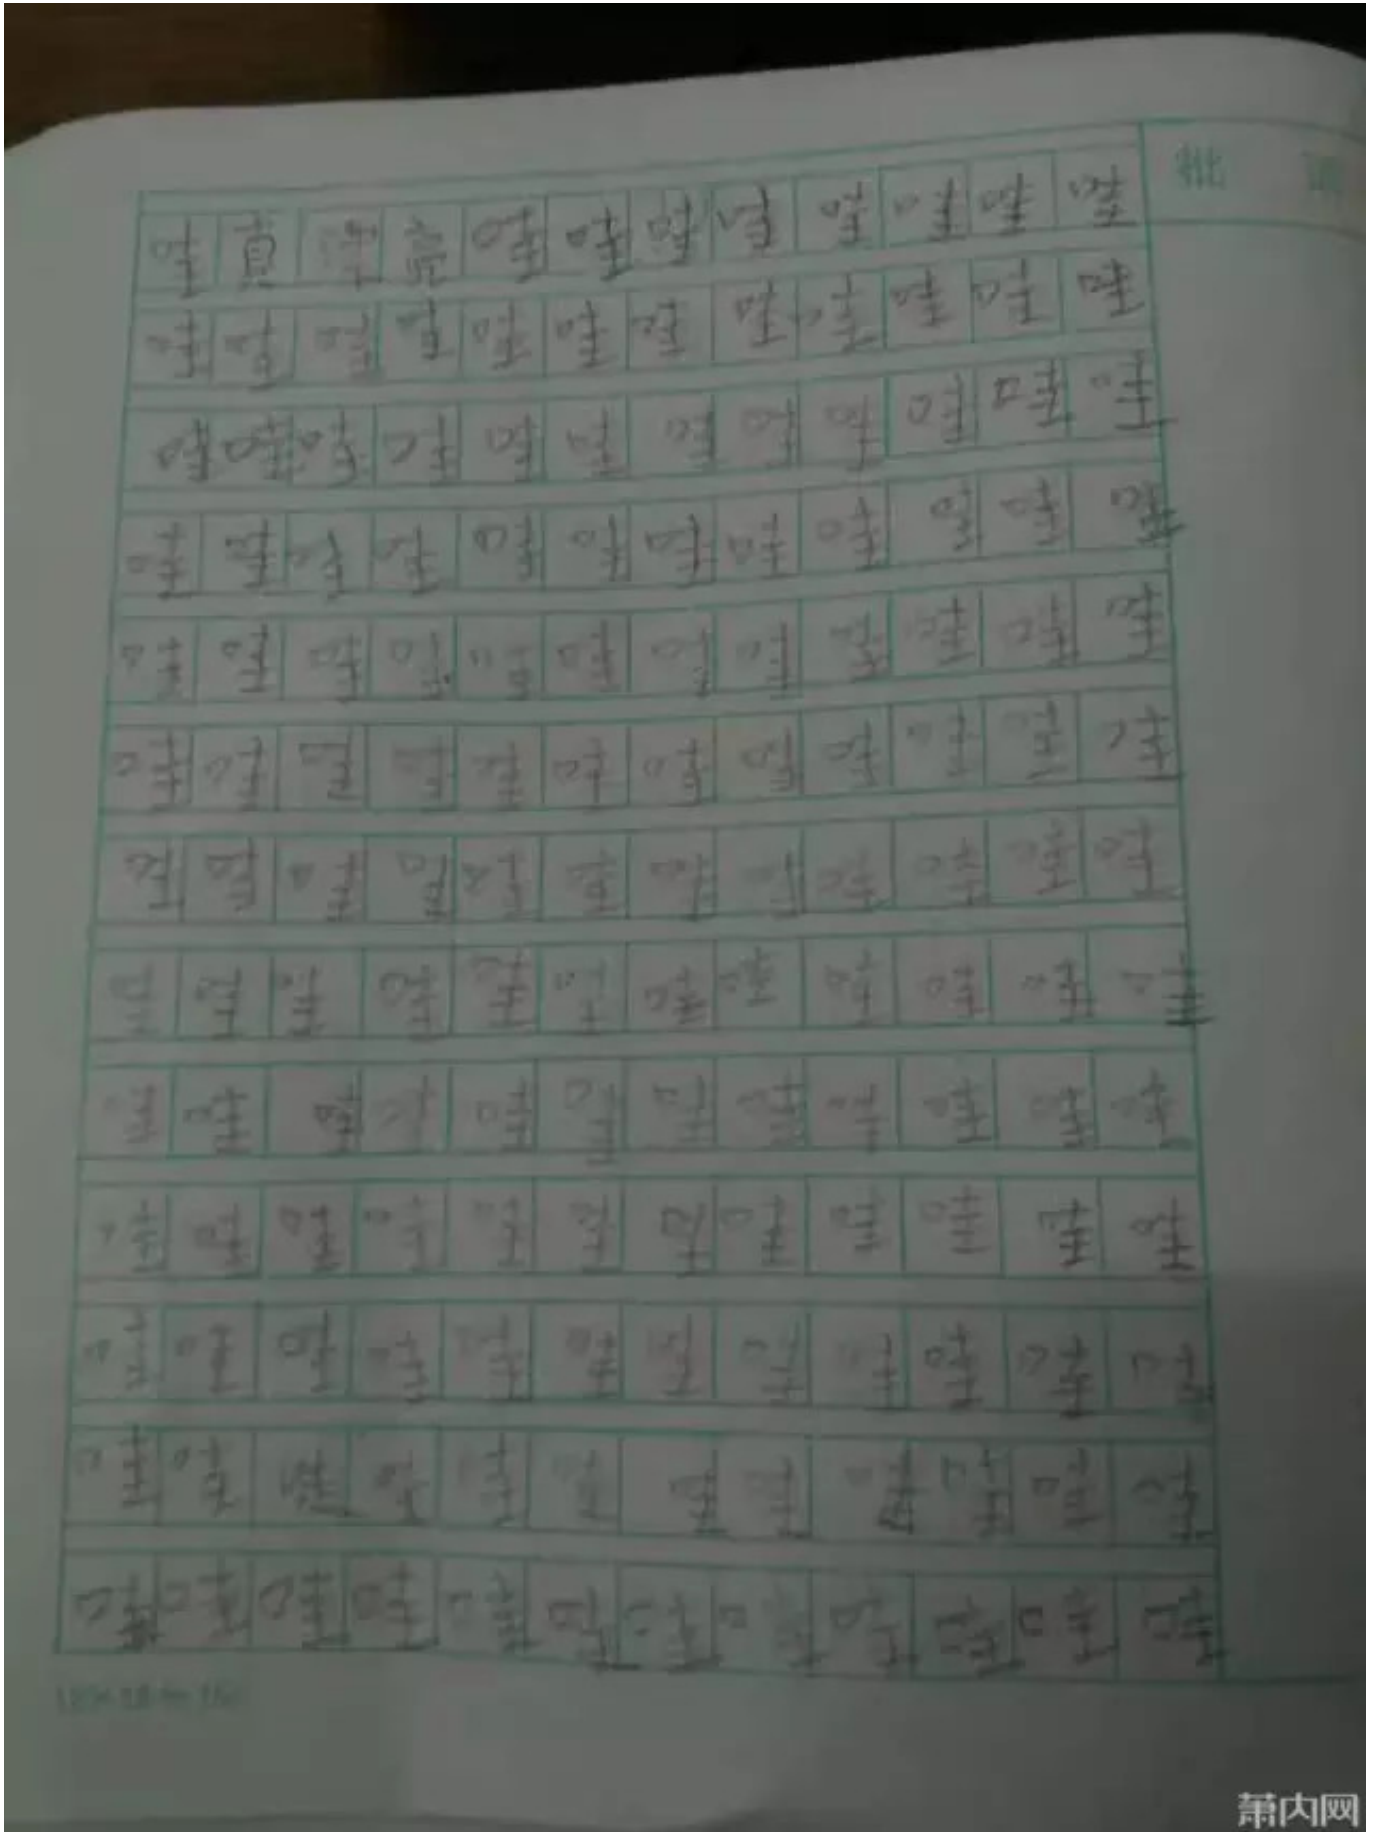 批 阅
哇真漂亮哇哇哇哇哇哇哇哇
哇哇哇哇哇哇哇哇哇哇哇哇
哇哇哇哇哇哇哇哇哇哇哇哇
哇哇哇哇哇哇哇哇哇哇哇哇
哇哇哇哇哇哇哇哇哇哇哇哇
哇哇哇哇哇哇哇哇哇哇哇哇
哇哇哇哇哇哇哇哇哇哇哇哇
哇哇哇哇哇哇哇哇哇哇哇哇
哇哇哇哇哇哇哇哇哇哇哇哇
哇哇哇哇哇哇哇哇哇哇哇哇
哇哇哇哇哇哇哇哇哇哇哇哇
哇哇哇哇哇哇哇哇哇哇哇哇
哇哇哇哇哇哇哇哇哇哇哇哇
萧内网